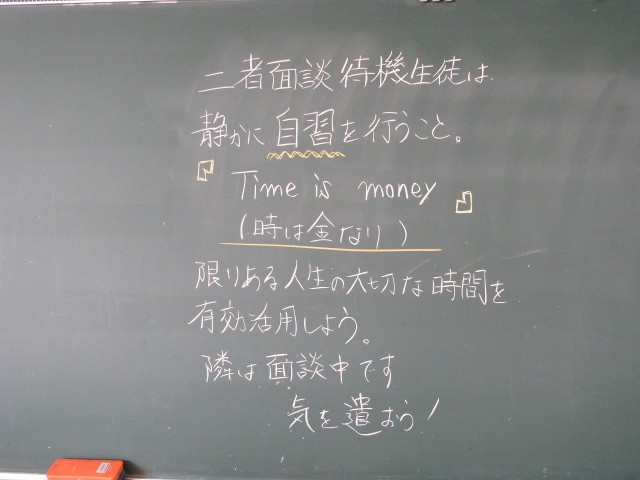 二者面談待機生徒は
静かに自習を行うこと。
『Time is money
(時は金なり)』
限りある人生の大切な時間を
有効活用しよう。
隣は面談中です
気を遣おう!